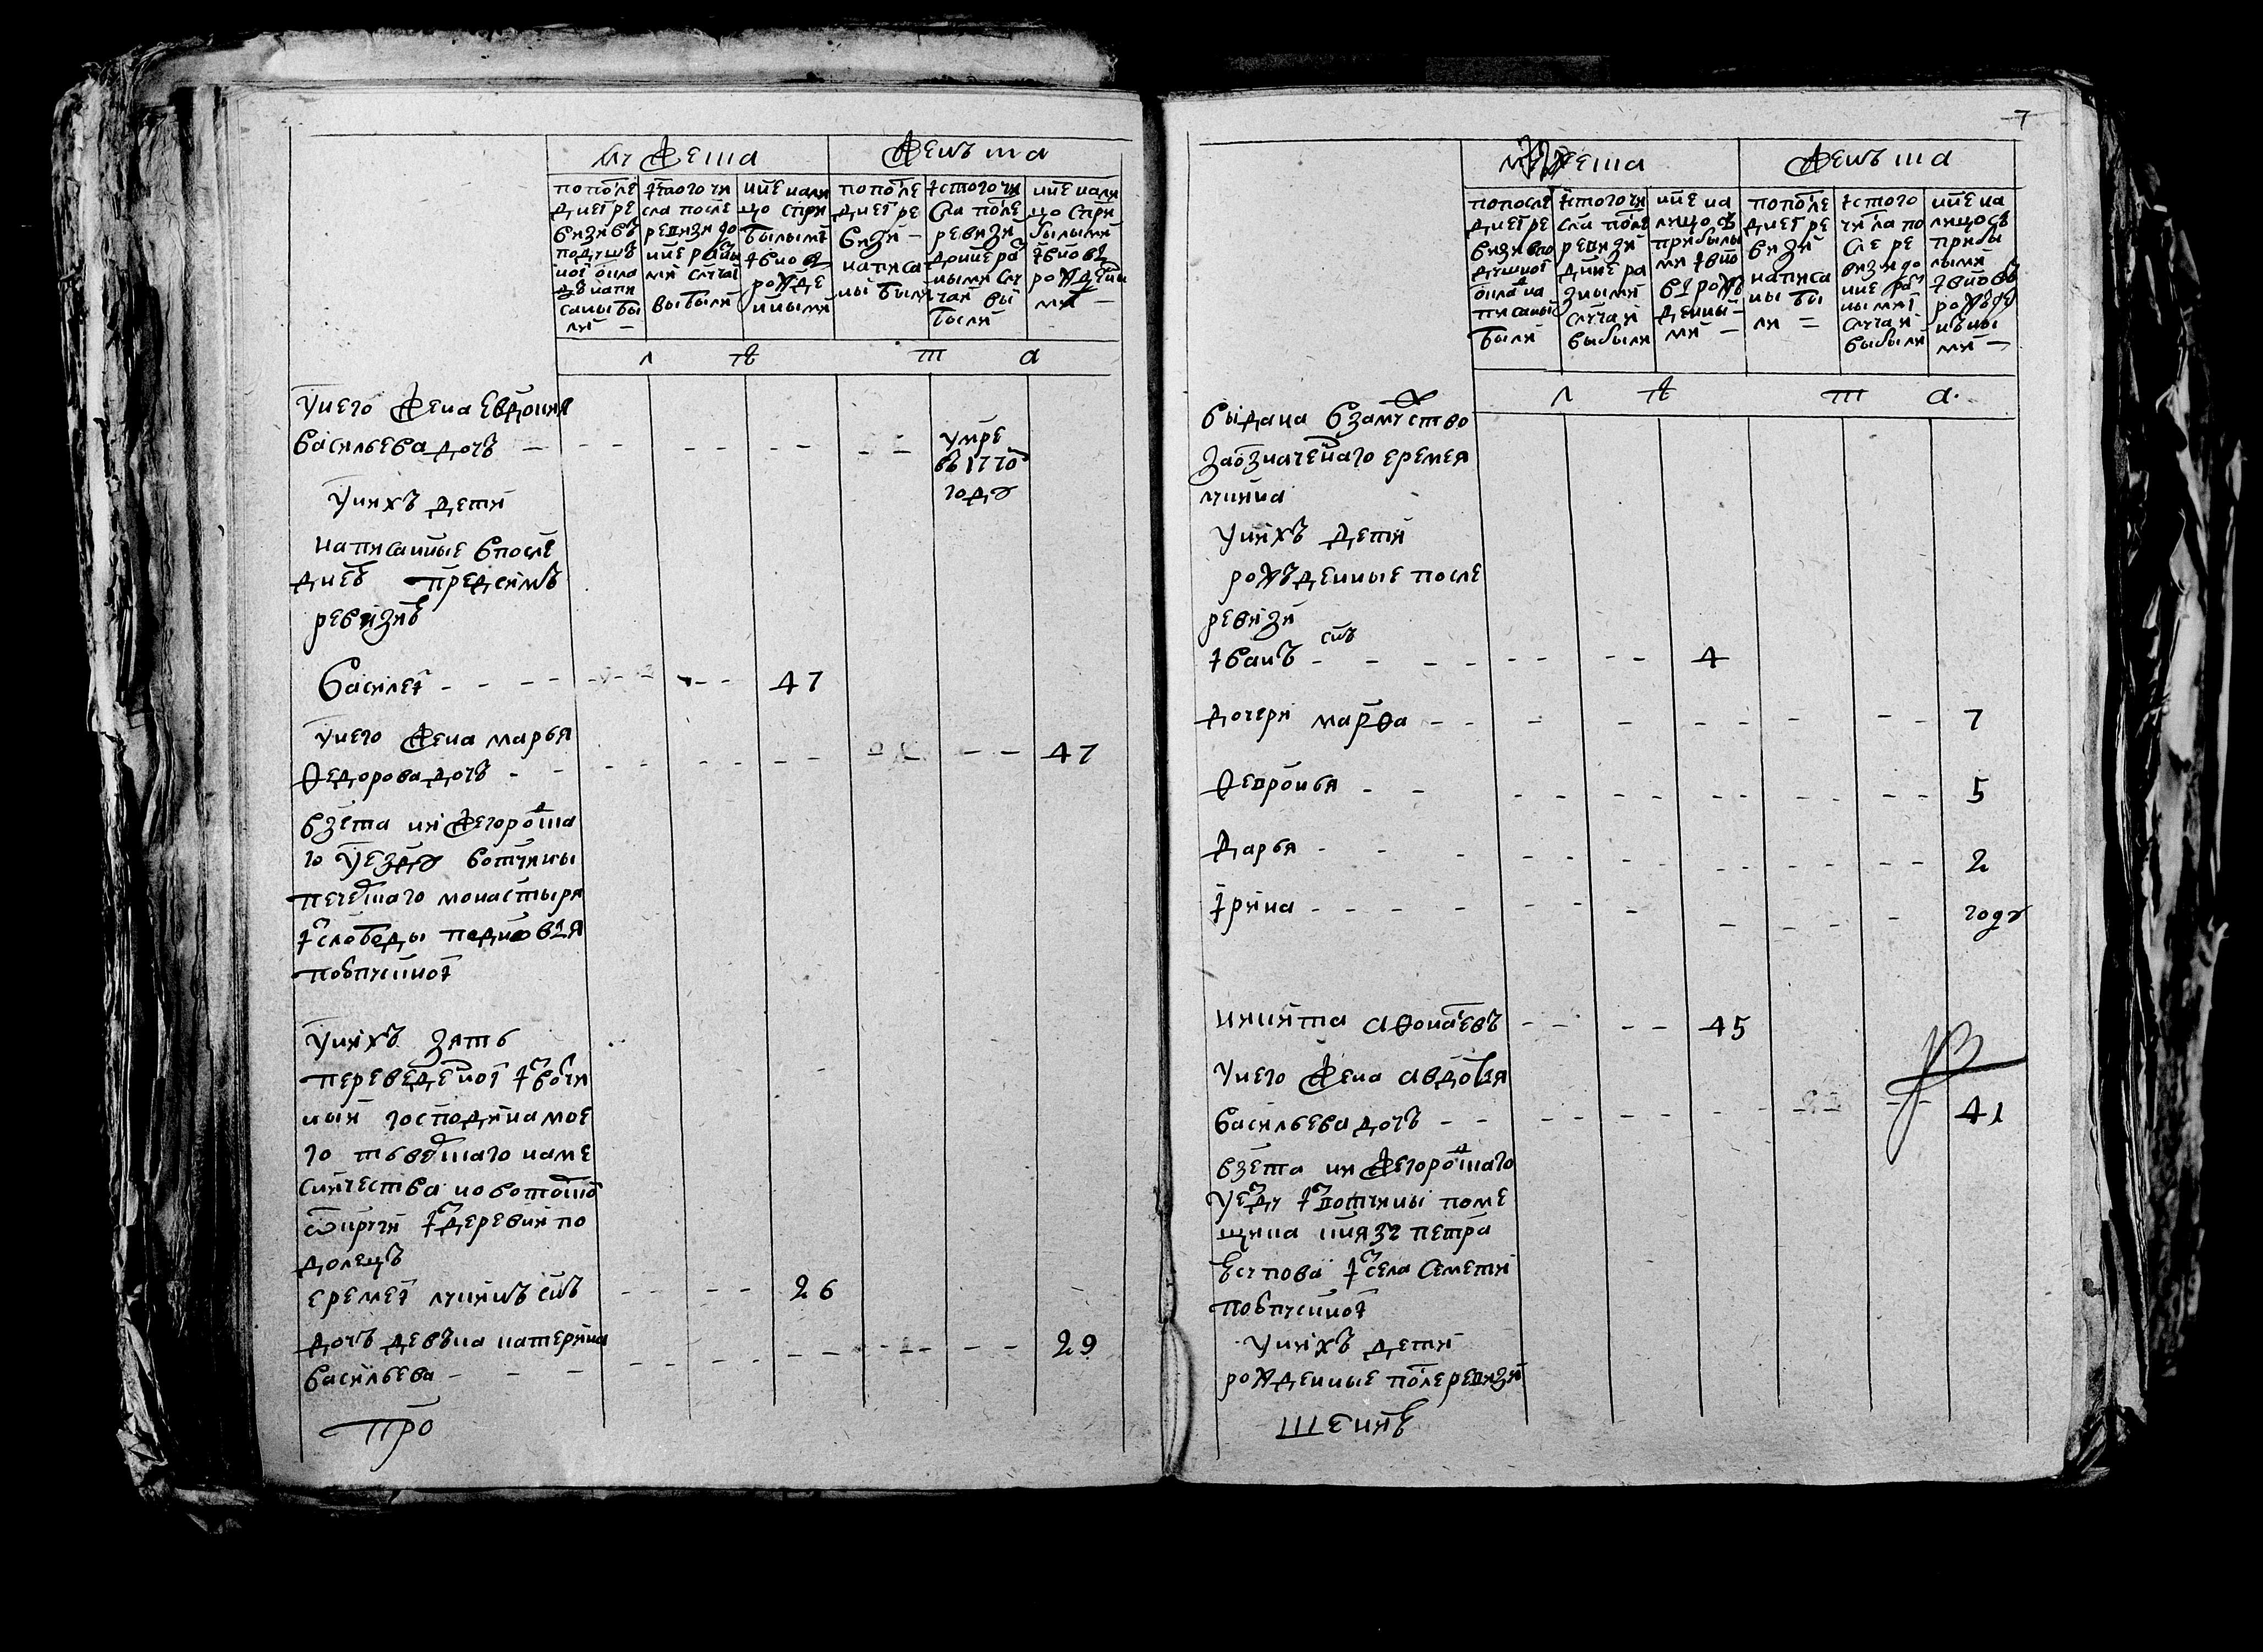 мужеска
женъ ска
попосле
днеі ре
визиі въ
подушъ
ноі окла
дъ напи
саны бы
ли
ізтого чи
сла после
ревизи до
ине разны
ми случаі
выбыли
ныне нали
цо спри
былыми
і вновь
рожде
нными
попосле
днеі ре
визи
написа
ны были
ізтого чи
сла после
ревизи
доныне ра
зными слу
чаи вы
были
ныне нали
цо спри
былыми
і вновь
рожденны
ми
л ѣ т а
унего жена евдокия
васильева дочь
умре
в 1770
году
унихъ дети
написанные впосле
днеі предсимъ
ревизиі
василеі 47
унего жена марья
ѳедорова дочь 47
взета нижегороцка
го уезду вотчины
печерскаго монастыря
із слободы подновья
поотпускноі
унихъ зять
переведеноі із вотчи
ны господина мое
го тверскаго наме
сничества новоторской
округи із деревни по
долецъ
еремеі лукинъ сынъ 26
дочь девъка катерина
васильева 29
про
7
мужеска
женъ ска
попосле
днеі ре
визи впо
душноі
окла на
писаны
были
ізтого чи
сла после
ревизи
доныне ра
зными
случаи
выбыли
ныне на
лицо съ
прибылы
ми і вно
вь рожъ
денны
ми
попосле
днеі ре
визи
написа
ны бы
ли
ізтого
числа по
сле ре
визи до
ныне раз
ными
случаи
выбыли
ныне на
лицо съ
прибы
лыми
і вновь
рожъде
нъны
ми
л ѣ т а
выдана взамужство
заозначенаго еремея
лукина
унихъ дети
рожъденные после
ревизи
іванъ сынъ 4
дочери марѳа 7
ѳевронья 5
дарья 2
ірина году
никита аѳонасевъ 45
унего жена авдотья
васильева дочь 41
взета нижегороцкаго
уезду із вотчины поме
щика князь петра
із села
поотпускноі
унихъ дети
рожденные после ревизи